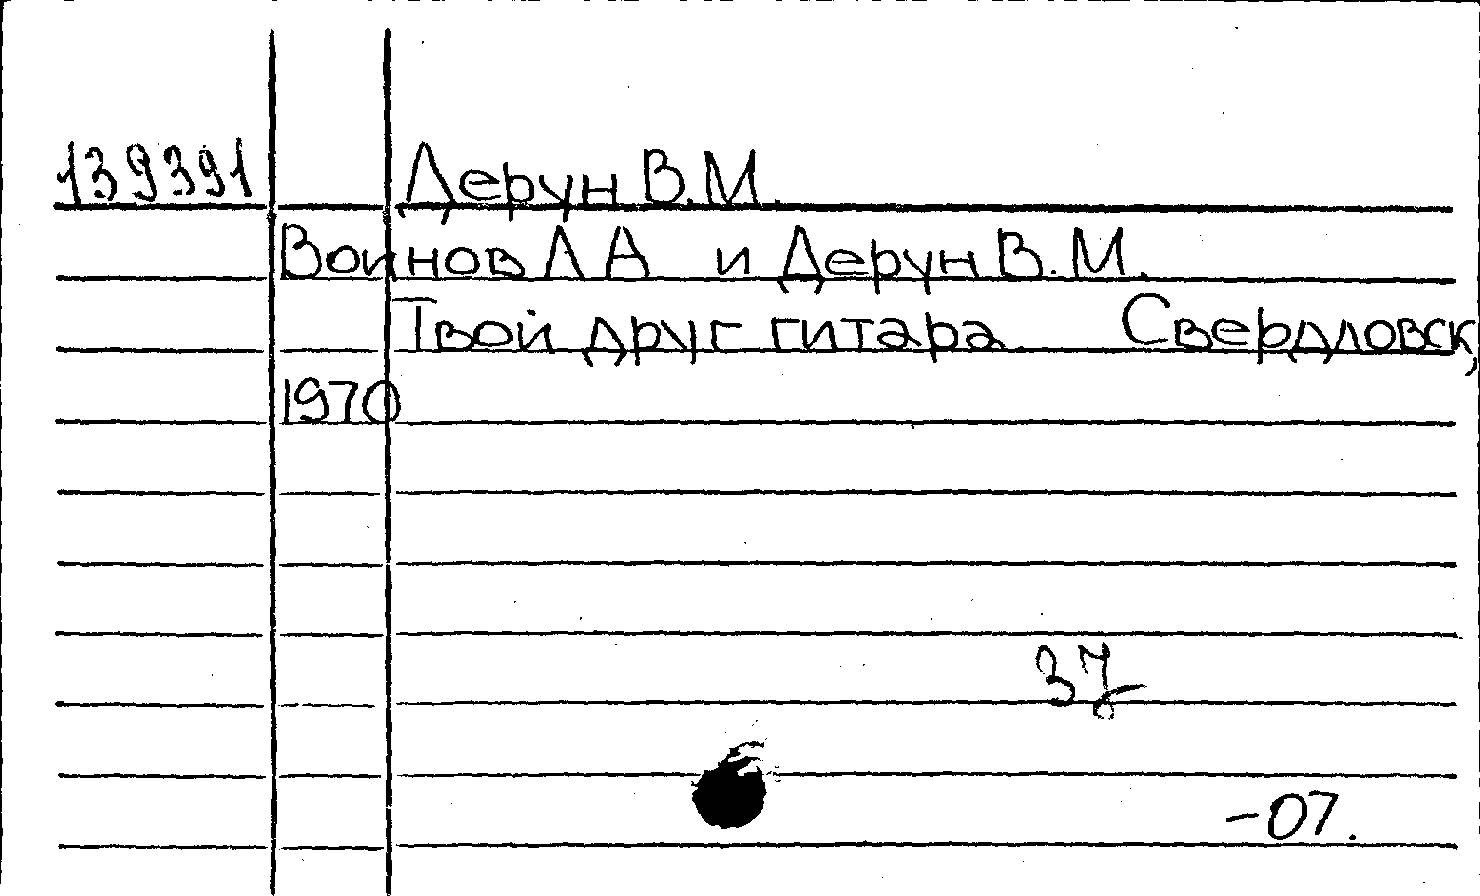 139391 Дерун В.М.
Воинов Л А и Дерун В.М.
Твой друг гитара. Свердловск,
1970
37
-07.